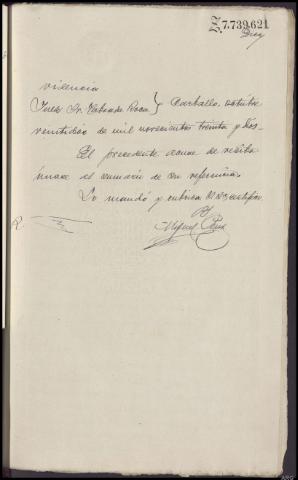 Z.7.739.621
Diez
videncia
Juez Sr. Taboada Roca } Carballo, octubre
veintidos de mil novecientos treinta y dos.-
El precedente acuse de recibo
únase al sumario de su referencia.
Lo mandó y rubrica S.S. certifico
R
Miguel
ARG